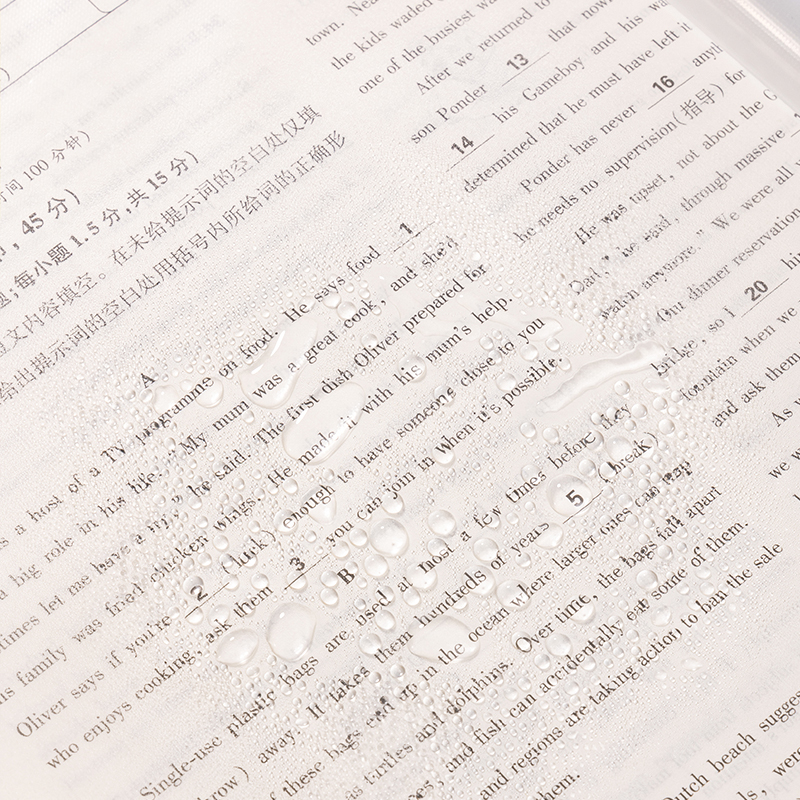 时间 100 分钟)
, 45 分)
题;每小题 1.5 分,共 15 分)
短文内容填空。在未给提示词的空白处仅填
给出提示词的空白处用括号内所给词的正确形
A
s a host of a TV programme on food. He says food 1
a big role in his life. "My mum was a great cook, and she'd
times let me have a try," he said. The first dish Oliver prepared for
is family was fried chicken wings. He made it with his mum's help.
Oliver says if you're 2 (luck) enough to have someone close to you
who enjoys cooking, ask them 3 you can join in when it's possible.
B
Single-use plastic bags are used at most a few times before they
row) away. It takes them hundreds of years 5 (break)
of these bags end up in the ocean where larger ones can trap
as turtles and dolphins. Over time, the bags fall apart
ces, and fish can accidentally eat some of them.
and regions are taking action to ban the sale
hem.
town. Nea
the kids waded
one of the busiest wa
After we returned to
son Ponder 13 that now
14 his Gameboy and his wa
determined that he must have left it
Ponder has never 16 anyth
he needs no supervision(指导) for
He was upset, not about the G
Dad," he said, through massive
watch anymore." We were all w
Our dinner reservation
bridge, so i 20 him
fountain when we
and ask them
As w
we w
Dutch beach sugges
ls, were